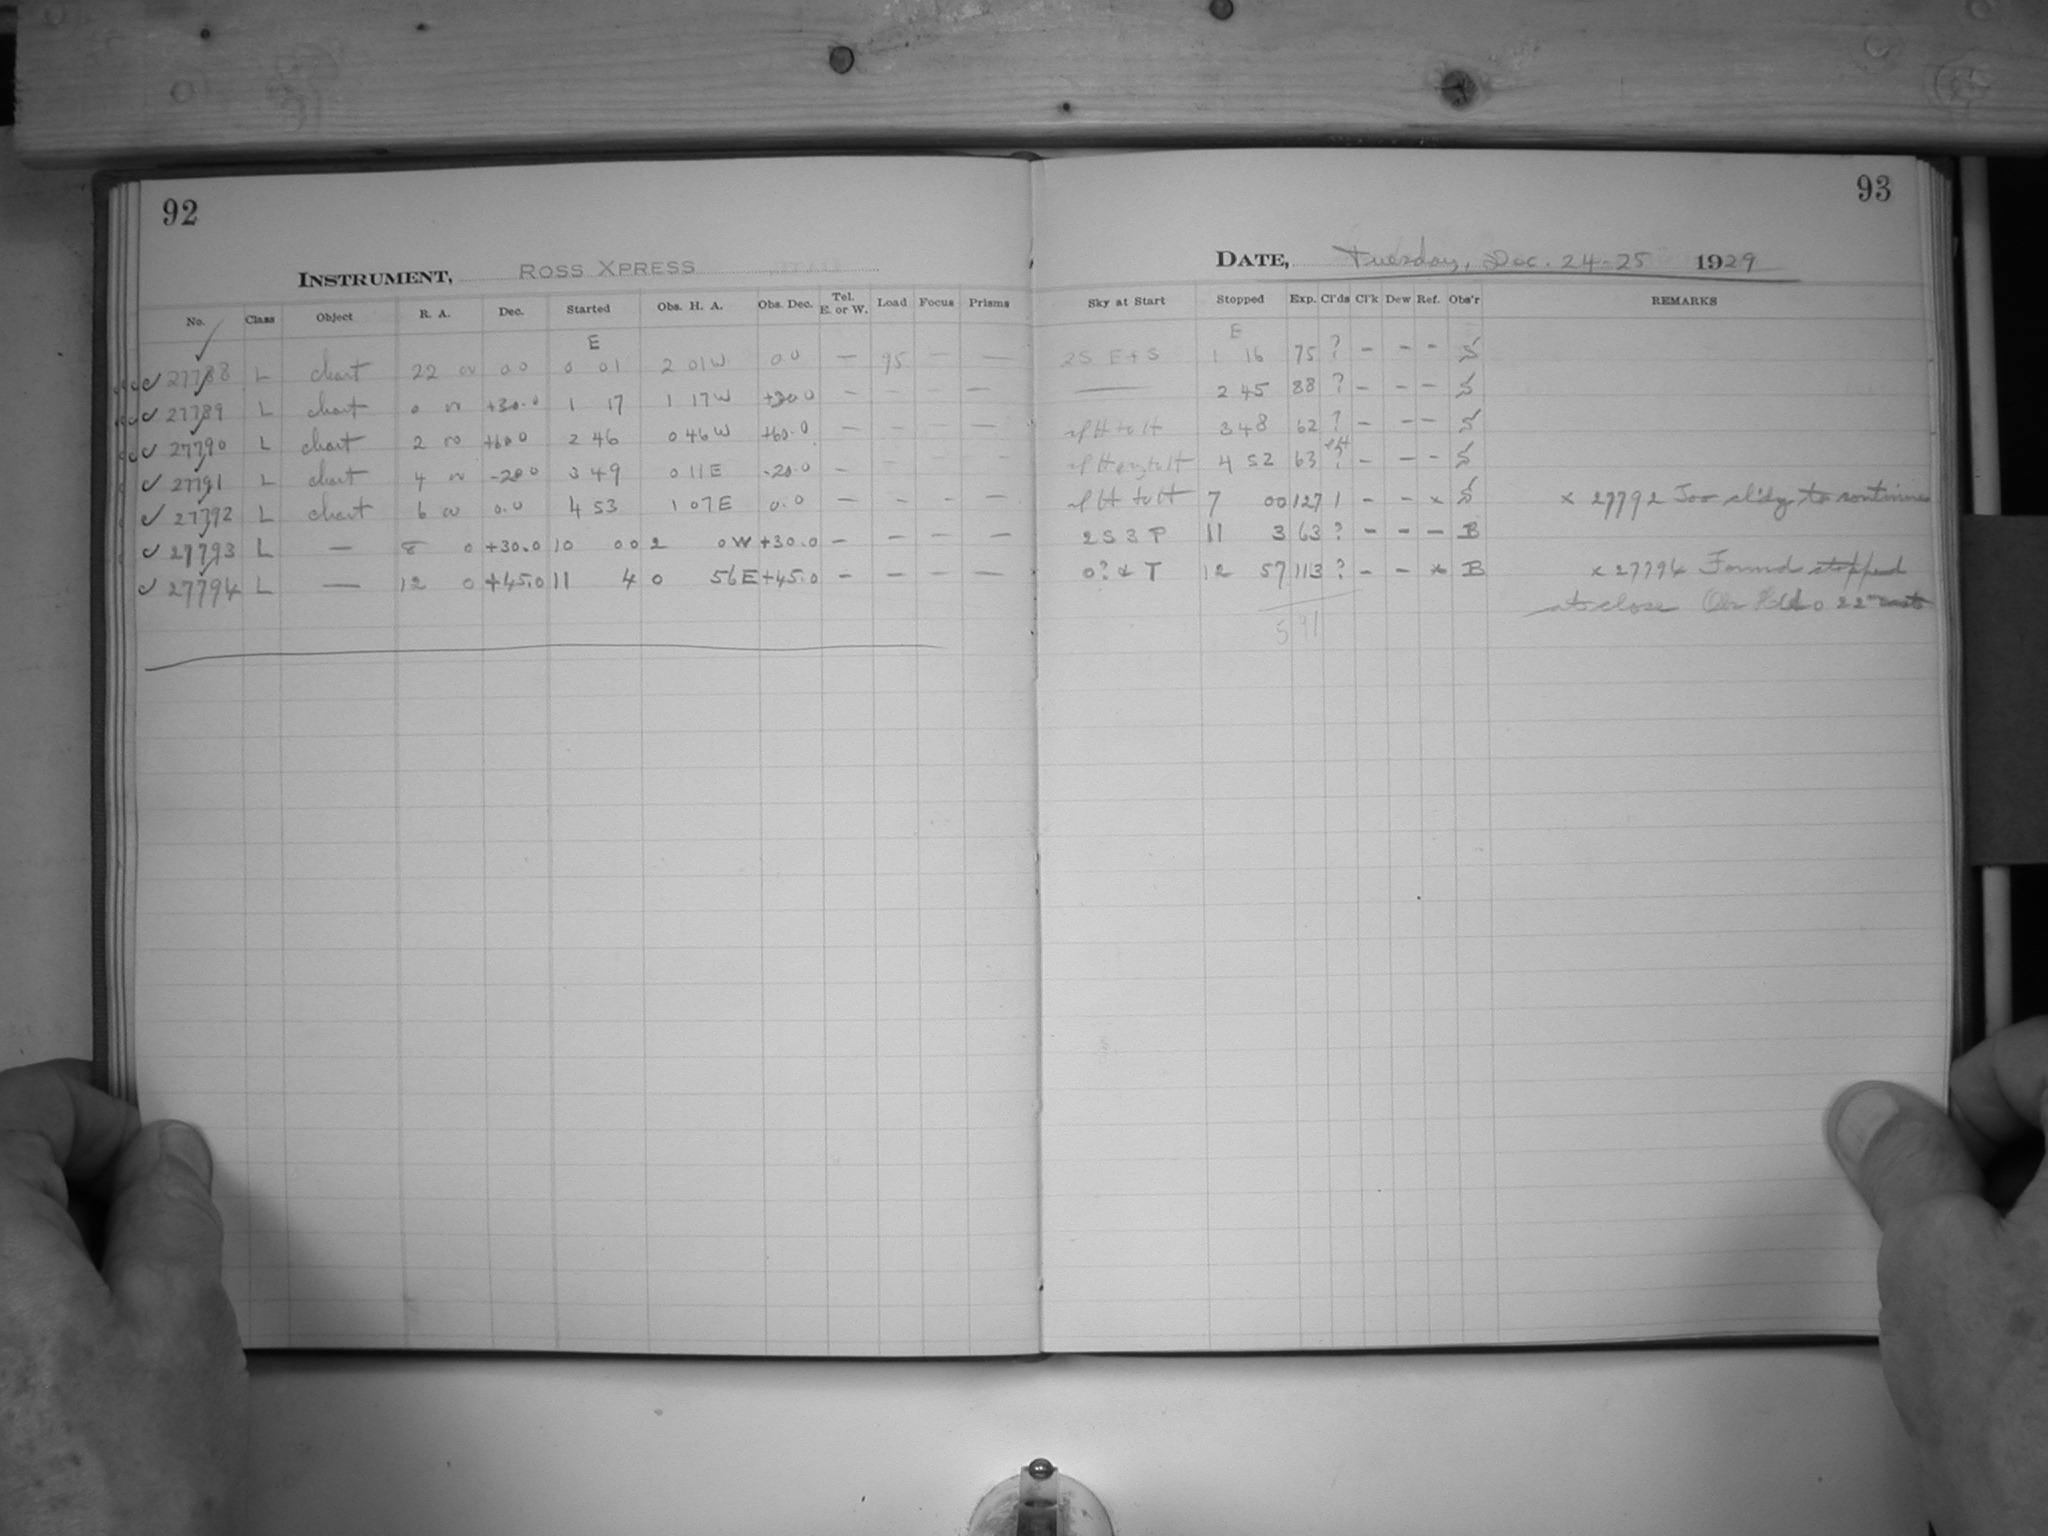 92
INSTRUMENT, ROSS XPRESS
No. Class Object R. A. Dec. Started Obs. H. A. Obs. Dec. Tel. E. or W. Load Focus Prisms
E
27788 L chart 22 00 0.0 0 01 2 01W 0.0 — 95 — —
27789 L chart 0 00 +30.0 1 17 1 17W +30.0 — — — —
27790 L chart 2 00 +60.0 2 46 0 46W +60.0 — — — —
27791 L chart 4 00 -20.0 3 49 0 11E -20.0 — — — —
27792 L chart 6 00 0.0 4 53 1 07E 0.0 — — — —
27793 L — 8 0 +30.0 10 00 2 0W +30.0 — — — —
27794 L — 12 0 +45.0 11 4 0 56E +45.0 — — — —
93
DATE, Tuesday, Dec. 24-25 1929
Sky at Start Stopped Exp. Cl'ds Cl'k Dew Ref. Obs'r REMARKS
E
2S E+S 1 16 75 ? — — — S
— 2 45 88 ? — — — S
to H 3 48 62 ? — — — S
4 52 63 ? — — — S
to H 7 00 127 1 — — x S x 27792 Too cl'dy to continue
2 S 3 P 11 3 63 ? — — — B
0? & T 12 57 113 ? — — x B x 27794 Found stopped
at close
591